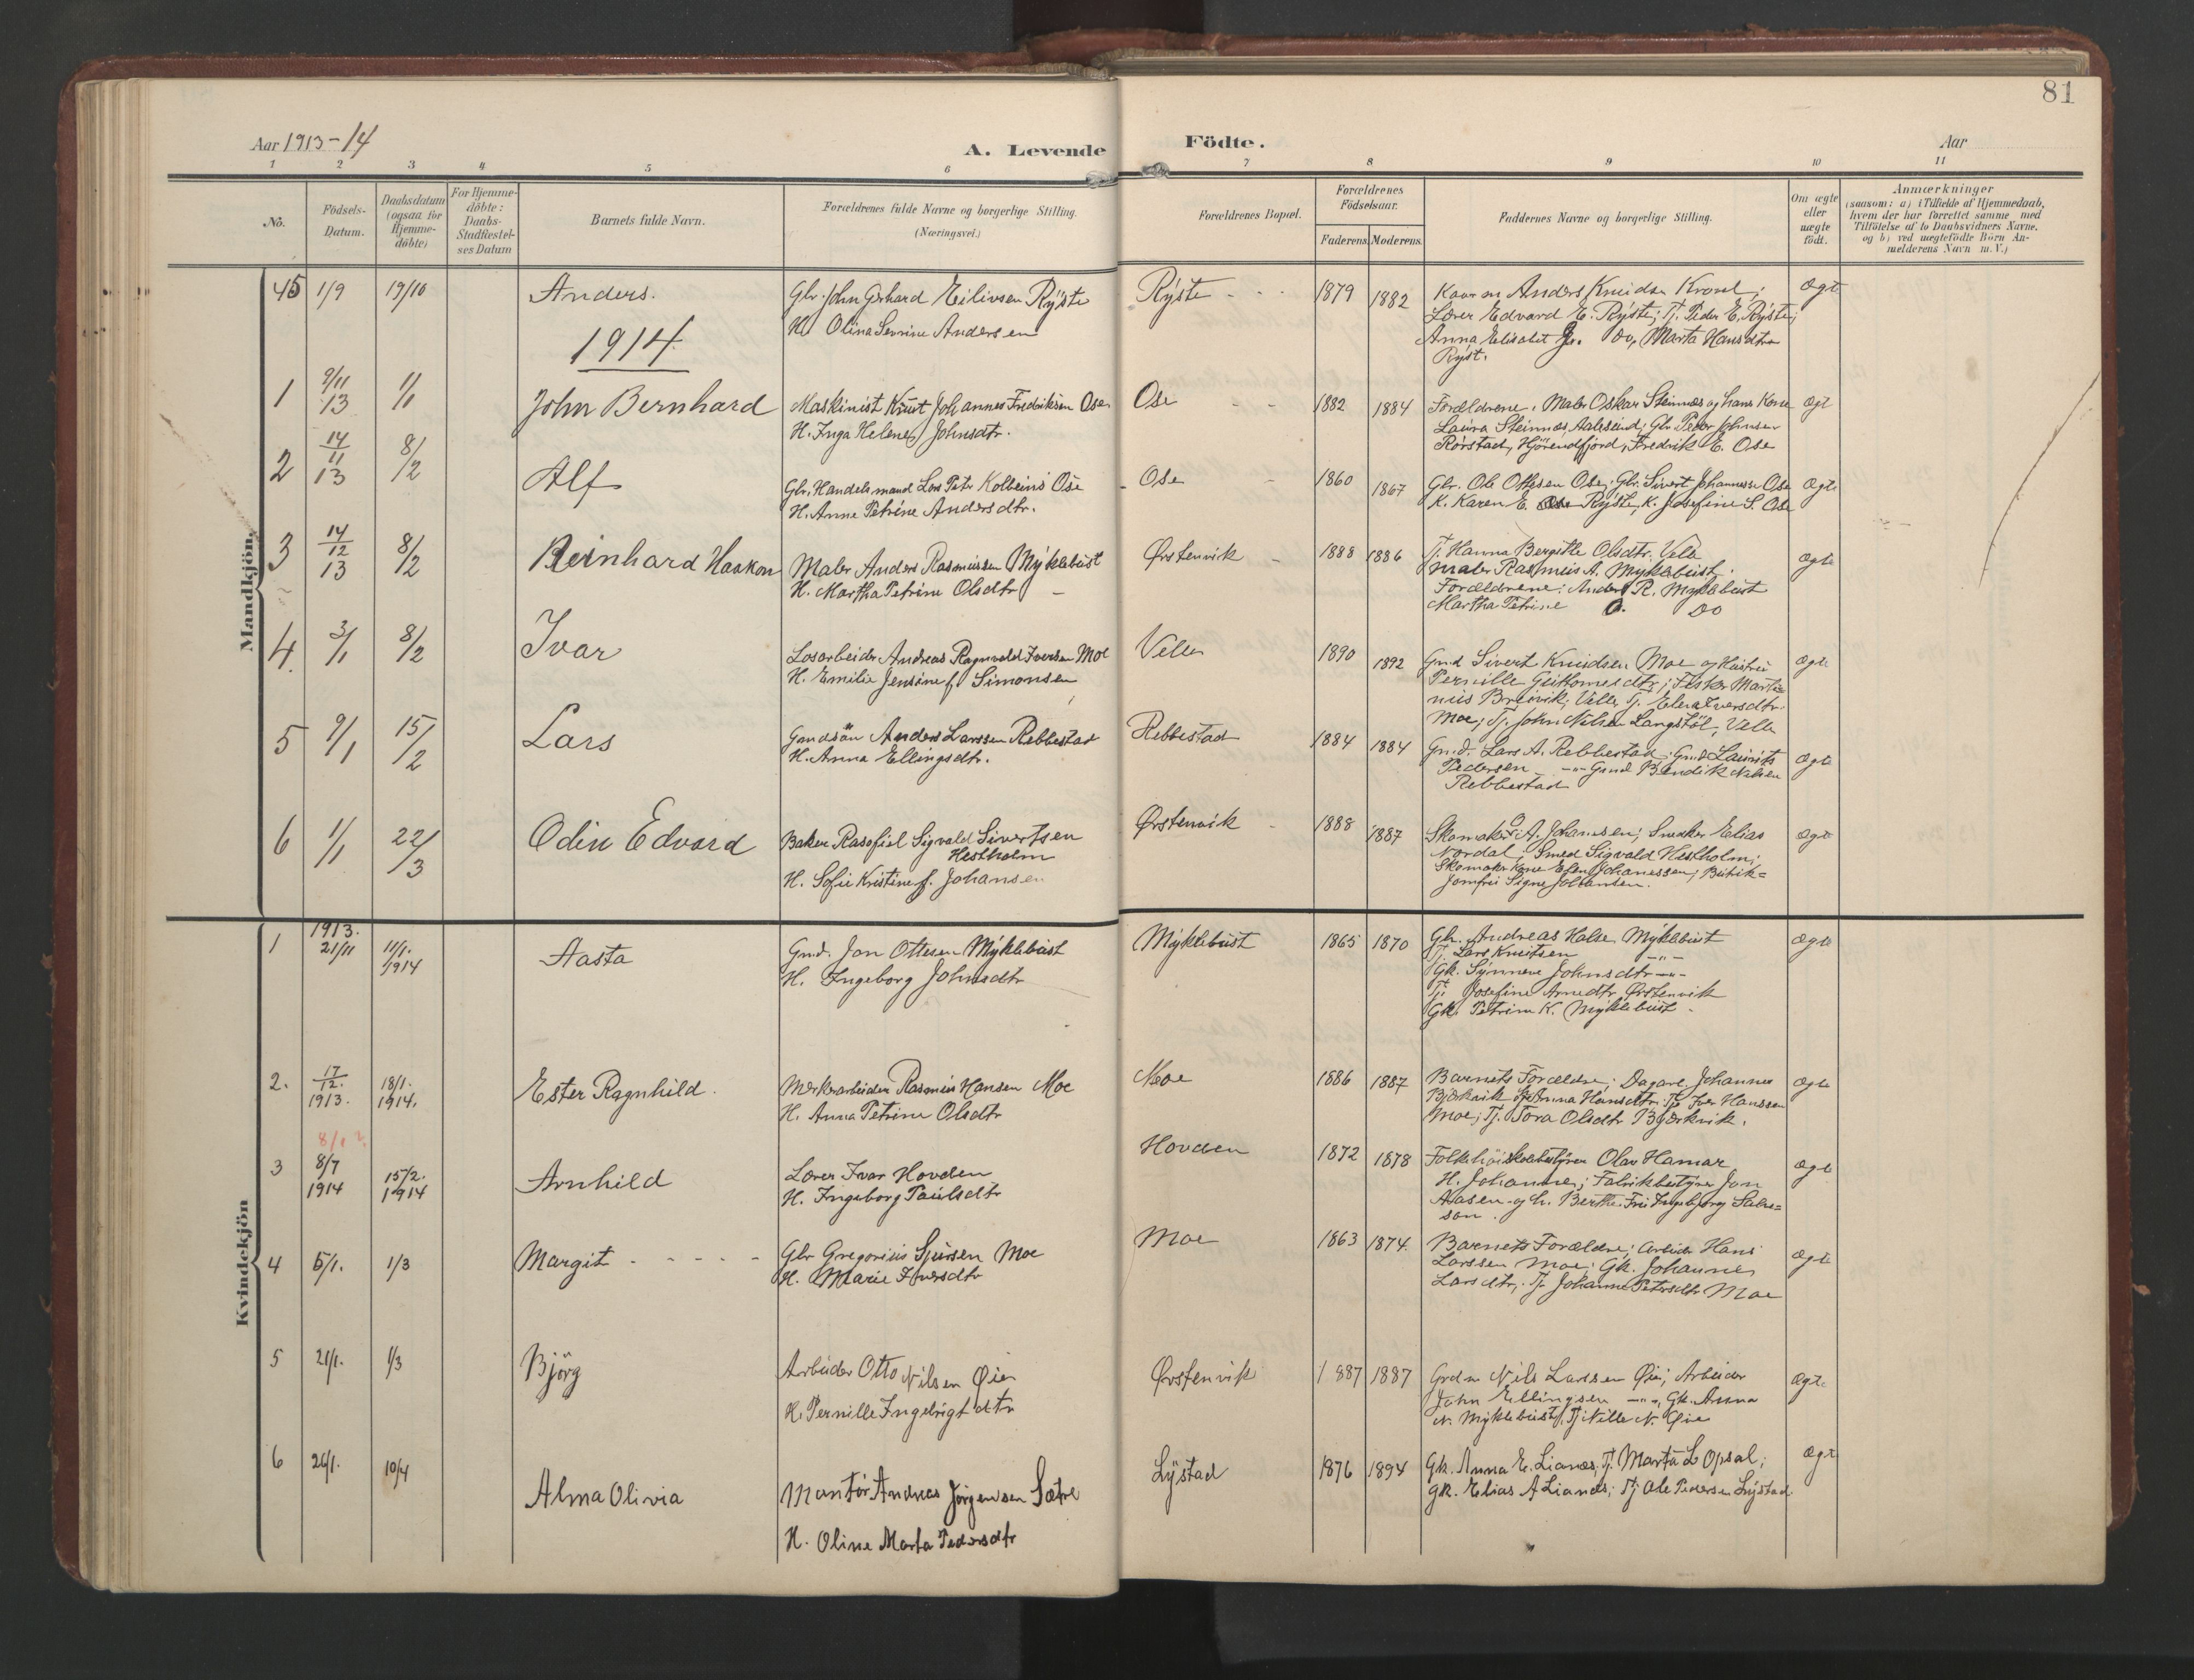 81
Aar 1913-14
A. Levende Födte.
Aar
1 2 3 4 5 6 7 8 9 10 11
No.
Födsels-
Datum.
Daabsdatum
(ogsaa for
Hjemme-
döbte)
For Hjemme-
döbte:
Daabs-
Stadfæstel-
ses Datum
Barnets fulde Navn.
Forældrenes fulde Navne og borgerlige Stilling.
(Næringsvei.)
Forældrenes Bopæl.
Forældrenes
Födselsaar.
Faderens. Moderens.
Faddernes Navne og borgerlige Stilling.
Om ægte
eller
uægte
födt.
Anmærkninger
(saasom: a) i Tilfælde af Hjemmedaab,
hvem der har forrettet samme med
Tilföielse af to Daabsvidners Navne.
og b) ved uægtefödte Börn An-
melderens Navn m. V.)
Mandkjön.
45 1/9 19/10 Anders.
Glr. John Gerhard Eilivsen Rÿste
H. Olina Sevrine Andersen
Rÿste - - -
1879 1882
Anders Knudsen
Lærer Edvard E. Rÿste; Tj. Peder E. Rÿste;
Anna Elisabet Do, Marta Hansdtr
Rÿst.
Ægte
1914
1 9/11 13 1/1 John Bernhard
Maskinist Knut Johannes Fredriksen Ose
H. Inga Helene Johnsdtr.
Ose - -
1882 1884
Forældrene, Maler Oskar Steinnes og hans Kone
Laura Steinnes, Aalesund; Glr. Peder Johnsen
Rörstad, Hjörendfjord; Fredrik E. Ose
Ægt
2 14/11 13 8/2 Alf
Glr, Handelsmand Lars Petr Kolbeins Ose
H. Anne Petrine Andersdtr.
Ose -
1860 1867
Glr. Ole Ottesen Ose; Glr. Sivert Johannesen Ose
K. Karen E. Rÿste, K. Josefine S. Ose
Ægte
3 14/12 13 8/2 Reinhard Haakon
Maler Anders Rasmussen Mÿklebust
H. Martha Petrine Olsdtr -
Ørstenvik -
1888 1886
Tj. Hanna Bergitte Olsdtr. Velle
Maler Rasmus A. Mÿklebust
Forældrene: Anders R. Mÿklebust
Martha Petrine O. Do
Ægte
4. 3/1 8/2 Ivar
Losarbeider Andreas Ragnvald Iversen Moe
H. Emilie Jensine f. Simonsen
Velle
1890 1892
Gmd Sivert Knudsen Moe og Hustru
Pernille Guttomesdtr; Fisker Marti-
nus Breivik, Velle, Tj. Iversdtr.
Moe; Tj. John Nilsen Langstöl, Velle
Ægte
5 9/1 15/2 Lars
Gmdsön Anders Larssen Rebbestad
H. Anna Ellingsdtr.
Rebbestad
1884 1884
Gmd. Lars A. Rebbestad; Gmd Laurits
Pedersen -"- Gmd Bendik Nilsen
Rebbestad
Ægte
6 1/1 22/3 Odin Edvard
Baker Rasofiel Sigvald Sivertsen
Hestholm
H. Sofie Kristine f. Johansen
Ørstenvik -
1888 1887
Skomaker A. Johansen; Snedker Elias
Nordal; Smed Sigvald Hestholm;
Skomaker Kone Johanessen; Butik=
Jomfru Signe Johansen.
Ægte
Kvindekjön
1 1913. 21/11 11/1. 1914 Aasta
Gmd. Jon Ottesen Mÿklebust
H. Ingeborg Johnsdtr
Mÿklebust
1865 1870
Glr. Andreas Halse Mÿklebust
Tj. Lars Knutsen -"-
Gk. Synneve Johnsdtr -"-
Tj. Josefine Arnedtr Ørstenvik
Gk. Petrine K. Mÿklebust.
Ægte
2. 17/12. 1913. 18/1. 1914. Ester Ragnhild.
Rasmus Hansen Moe
H. Anna Petrine Olsdtr
Moe
1886 1887
Barnets Forældre; Dagarb. Johannes
Bjørkvik Anna Hansdtr. Tj. Iver Hanssen
Moe; Tj. Tora Olsdtr Bjørkvik.
Ægte
8/1 ?.
3 8/7 1914 15/2. 1914 Arnhild
Lærer Ivar Hovden
H. Ingeborg Paulsdtr
Hovden
1872 1878
Folkehöiskolebestÿrer Olav Hamar
H. Johanne; Fabrikbestÿrer Jon
Aasen og h. Berthe. Fru Ingebjørg
son.
Ægte
4 5/1. 1/3 Margit - - - - -
Glr Gregorius Sjursen Moe
H. Marie Iversdtr
Moe
1863 1874.
Barnets Forældre; Arbeider Hans
Larssen Moe; Gk. Johanne
Larsdtr, Tj. Johanne Petersdtr Moe
Ægte
5 21/1. 1/3 Bjørg
Arbeider Otto Nilsen Øie
H. Pernille Ingebrigtdtr
Ørstenvik
1887 1887
Grdm Nils Larssen Øie; Arbeider
John Ellingsen -"-, Gk. Anna
N. Mÿklebust, Tj Nille N. Øie
Ægte
6 26/1. 10/4 Alma Olivia
Montör Andreas Jörgensen Sætre
H. Oline Marta Pedersdtr
Lÿstad
1876 1894
Gk. Anna E. Lianes; Tj. Marta L Opsal;
gk. Elias A Lianes; Tj Ole Pedersen Lÿstad.
Ægte